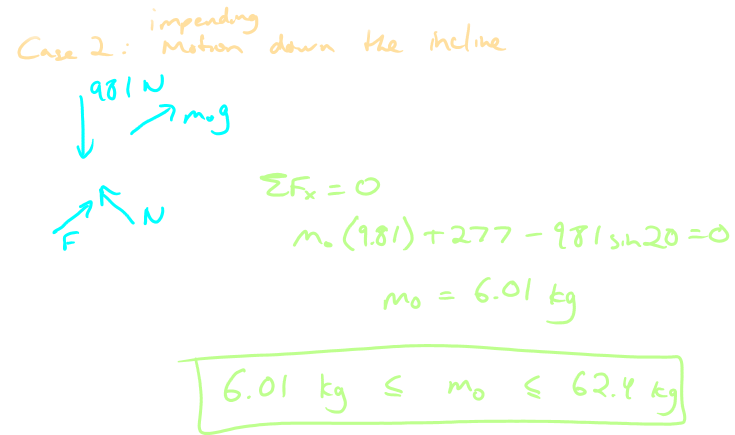 impending
Case 2: Motion down the incline
981 N
m₀g
F
N
ΣFₓ = 0
m₀(9.81) + 277 - 981 sin 20 = 0
m₀ = 6.01 kg
6.01 kg ≤ m₀ ≤ 62.4 kg